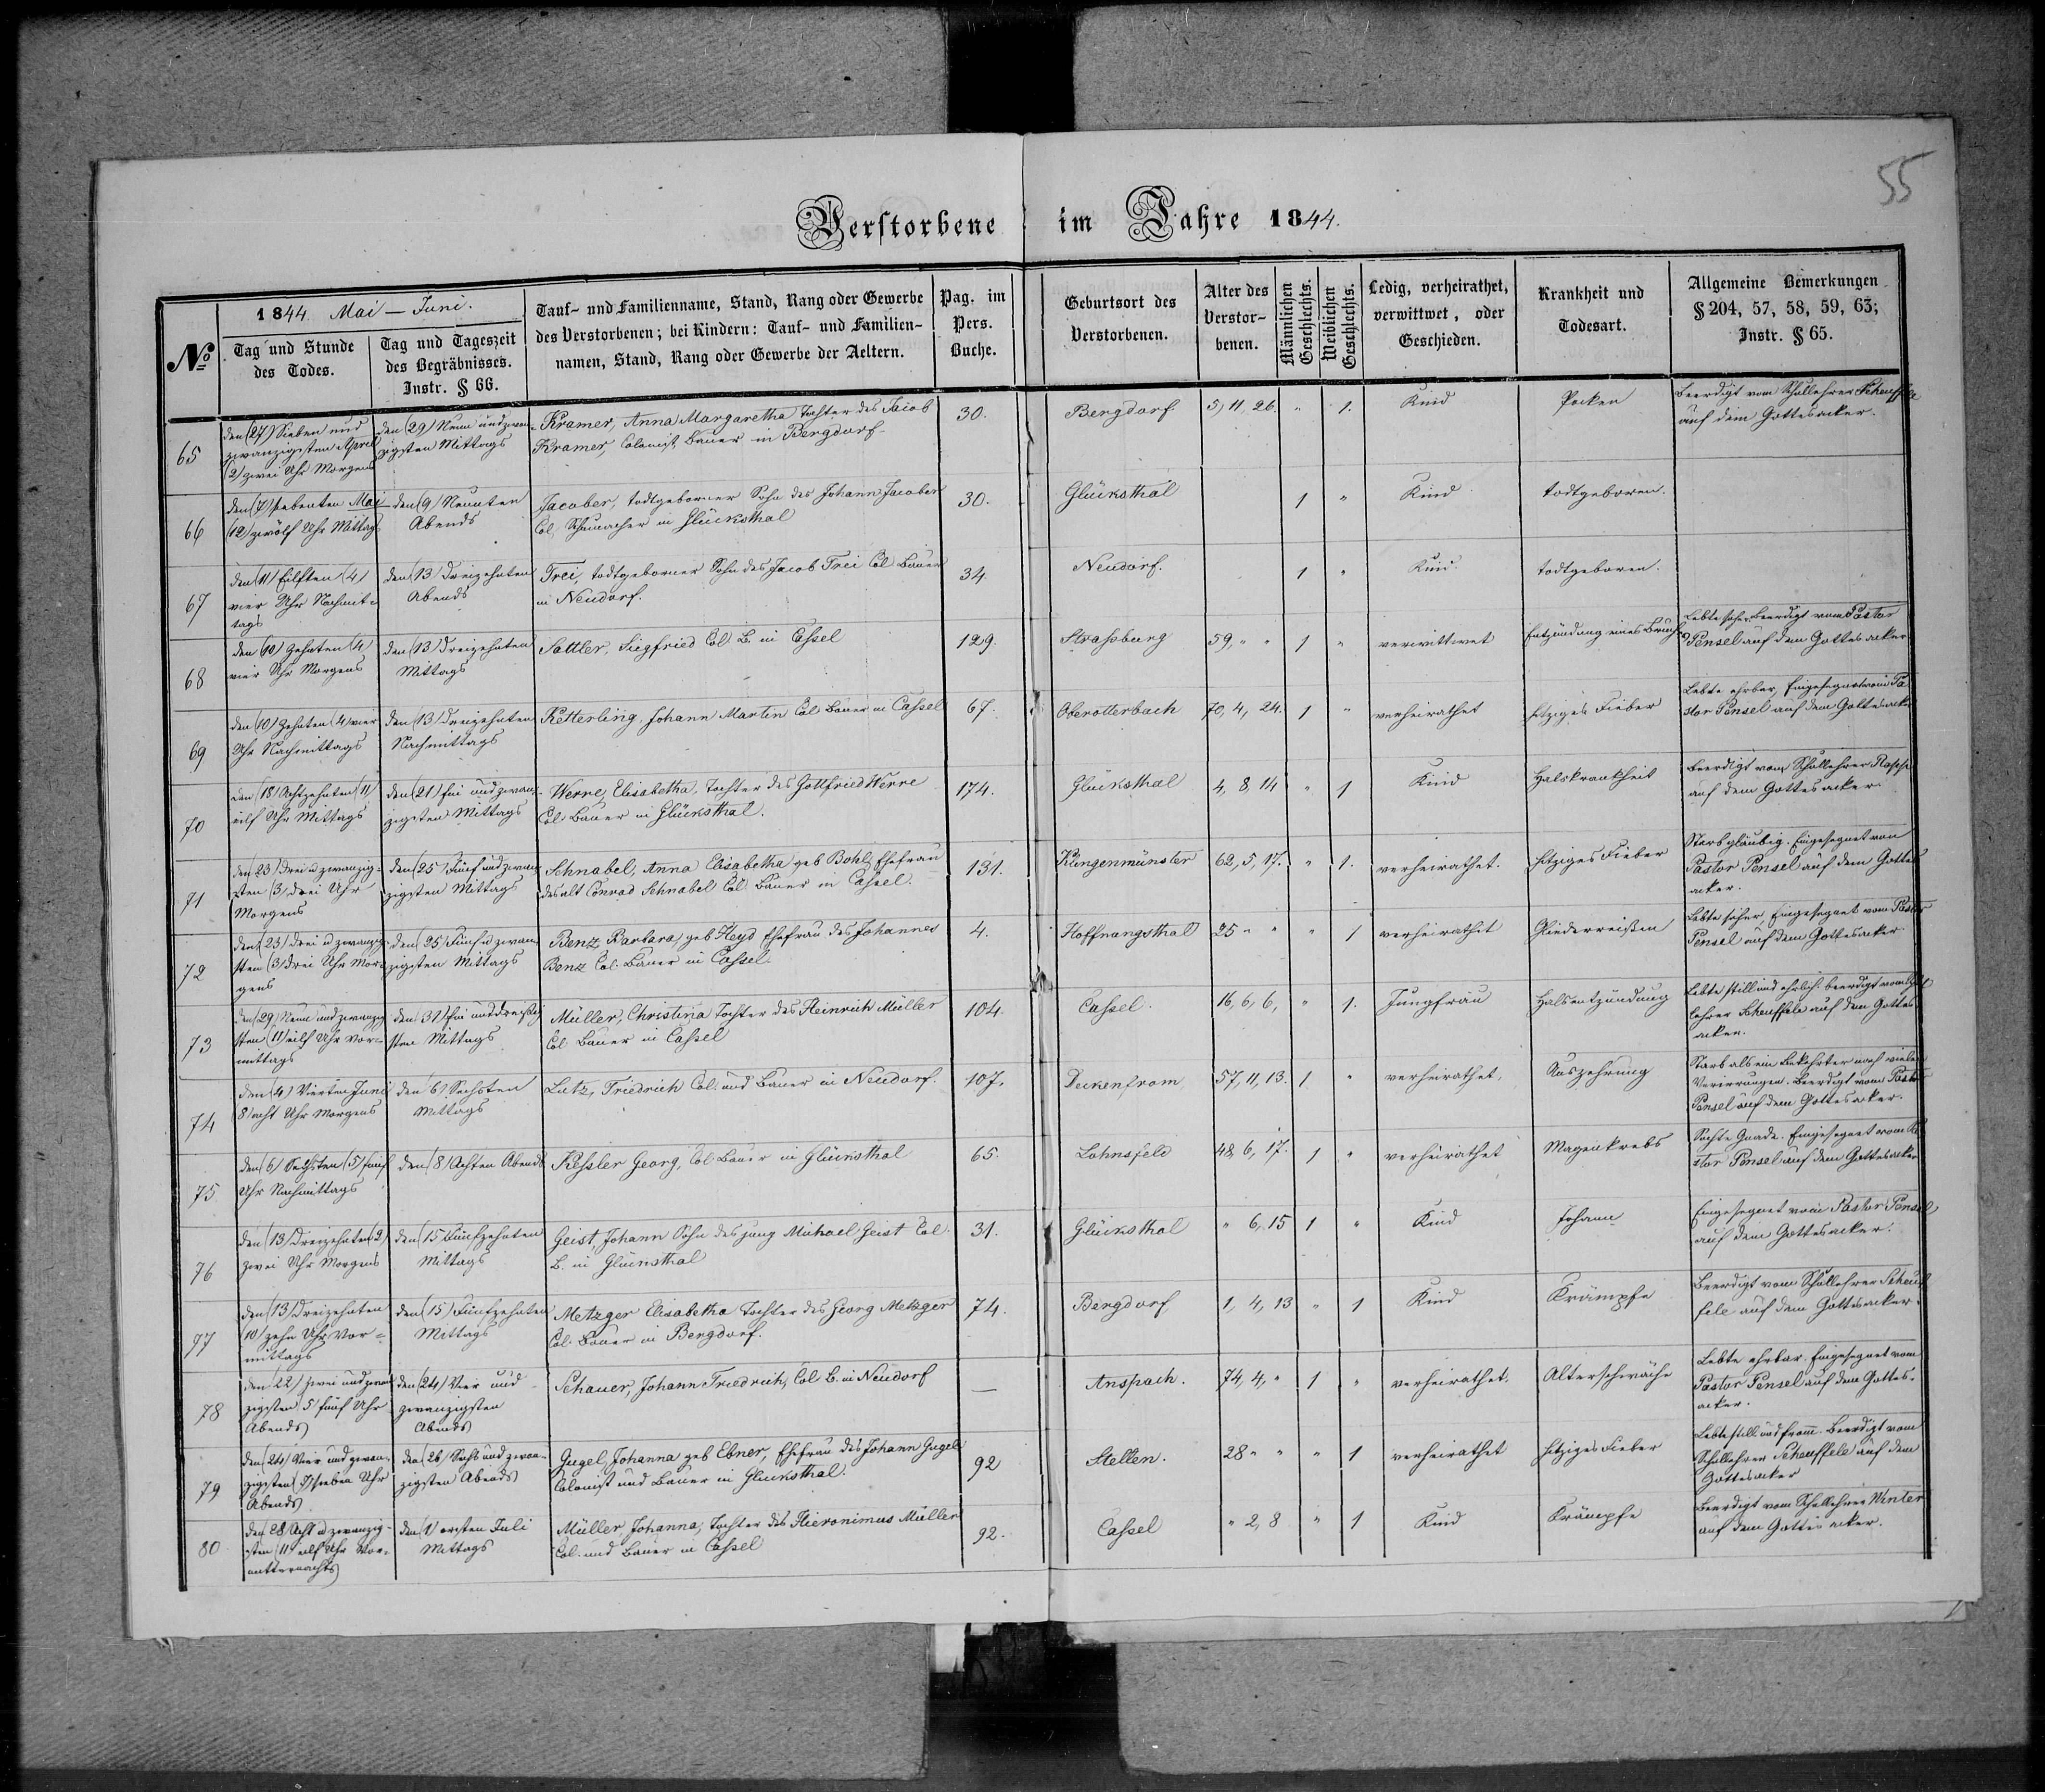 55
Verstorbene im Jahre 1844.
№
1844. Mai — Juni.
Tag und Stunde des Todes.
Tag und Tageszeit des Begräbnisses. Instr. § 66.
Tauf- und Familienname, Stand, Rang oder Gewerbe
des Verstorbenen; bei Kindern: Tauf- und Familien-
namen, Stand, Rang oder Gewerbe der Aeltern.
Pag. im Pers. Buche.
Geburtsort des Verstorbenen.
Alter des Verstor- benen.
Männlichen Geschlechts.
Weiblichen Geschlechts.
Ledig, verheirathet, verwittwet, oder Geschieden.
Krankheit und Todesart.
Allgemeine Bemerkungen § 204, 57, 58, 59, 63; Instr. § 65.
65
den (27) Sieben und
zwanzigsten April
(2) zwei Uhr Morgens
den (29) Neun und zwan-
zigsten Mittags
Kramer, Anna Margaretha Tochter des Jacob
Kramer, Colonist, Bauer in Bergdorf
30.
Bergdorf
5, 11, 26.
"
1.
Kind
Pocken
Beerdigt vom Schullehrer Scheuffele
auf dem Gottesacker.
66
den (7) siebenten Mai
(12) zwölf Uhr Mittags
den (9) Neunten
Abends
Jacober, todtgeborner Sohn des Johann Jacober
Col. Schumacher in Glücksthal
30.
Glücksthal
1
"
Kind
todtgeboren.
67
den (11) Eilften (4)
vier Uhr Nachmit-
tags
den (13) Dreizehnten
Abends
Frei, todtgeborner Sohn des Jacob Frei Col. Bauer
in Neudorf.
34
Neudorf.
1
"
Kind
todtgeboren.
68
den (10) Zehnten (4)
vier Uhr Morgens
den (13) Dreizehnten
Mittags
Sattler, Siegfried Col. B. in Cassel
129.
Strassburg
59, " "
1
"
verwittwet
Entzündung eines Bruchs
Beerdigt vom Pastor
Pensel auf dem Gottesacker
69
den (10) Zehnten (4) vier
Uhr Nachmittags
den (13) Dreizehnten
Nachmittags
Ketterling, Johann Martin Col. Bauer in Cassel
67.
Oberotterbach
70, 4, 24.
1
"
verheirathet
hitziges Fieber
Lebte ehrbar, Eingesegnet vom Pa-
stor Pensel auf dem Gottesacker
70
den (18) Achtzehnten (11)
eilf Uhr Mittags
den (21) Ein und zwan-
zigsten Mittags
Werre, Elisabetha, Tochter des Gottfried Werre
Col. Bauer in Glücksthal.
174.
Glücksthal
4, 8, 14
"
1
Kind
Halskrankheit
Beerdigt vom Schullehrer
auf dem Gottesacker
71
den (23) Drei u zwanzig-
sten (3) drei Uhr
Morgens
den (25) Fünf und zwan-
zigsten Mittags
Schnabel, Anna Elisabetha geb Bohl, Ehefrau
des alt Conrad Schnabel Col. Bauer in Cassel.
131.
Klingenmünster
62, 5, 17.
"
1.
verheirathet.
hitziges Fieber
Starb gläubig. Eingesegnet von
Pastor Pensel auf dem Gottes
acker.
72
den (23) Drei u zwanzig-
sten (3) drei Uhr Mor-
gens
den (25) Fünf u zwan-
zigsten Mittags
Benz, Barbara, geb Heyd Ehefrau des Johannes
Benz Col. Bauer in Cassel.
4.
Hoffnungsthal
25 " "
"
1
verheirathet
Gliederreißen
Eingesegnet vom Pastor
Pensel auf dem Gottesacker.
73
den (29) Neun und zwanzig
sten (11) eilf Uhr Vor-
mittags
den (31) Ein und dreißig
sten Mittags
Müller, Christina Tochter des Heinrich Müller
Col. Bauer in Cassel
104.
Cassel.
16, 6, 6,
"
1.
Jungfrau
Halsentzündung
Lebte still und ehrlich. beerdigt vom Schul
lehrer Scheuffele auf dem Gottes
acker.
74
den (4) Vierten Juni
(8) acht Uhr Morgens
den (6) Sechsten
Mittags
Lutz, Friedrich Col. und Bauer in Neudorf.
107.
Deckenfrom,
57, 11, 13.
1
"
verheirathet,
Auszehrung
Starb als ein Bekehrter nach vielen
Verirrungen. Beerdigt vom Pastor
Pensel auf dem Gottesacker.
75
den (6) Sechsten (5) fünf
Uhr Nachmittags
den (8) Achten Abends
Kessler Georg, Col. Bauer in Glücksthal
65.
Lohnsfeld
48, 6, 17.
1
"
verheirathet
Magenkrebs
Suchte Gnade. Eingesegnet vom Pa
stor Pensel auf dem Gottesacker
76
den (13) Dreizehnten (2)
zwei Uhr Morgens
den (15) Fünfzehnten
Mittags
Geist, Johann Sohn des jung Michael Geist Col.
B. in Glücksthal
31.
Glücksthal
" 6, 15
1
"
Kind
Eingesegnet vom Pastor Pensel
auf dem Gottesacker.
77
den (13) Dreizehnten
(10) zehn Uhr Vor-
mittags
den (15) Fünfzehnten
Mittags
Metzger Elisabetha Tochter des Georg Metzger
Col. Bauer in Bergdorf.
74.
Bergdorf,
1, 4, 13
"
1
Kind
Krämpfe
Beerdigt vom Schullehrer Scheuf
fele auf dem Gottesacker.
78
den (22) zwei und zwan
zigsten 5) fünf Uhr
Abends
den (24) Vier und
zwanzigsten
Abends
Schauer, Johann Friedrich, Col. B. in Neudorf
—
Anspach.
74, 4, "
1
"
verheirathet.
Alterschwäche
Lebte ehrbar. Eingesegnet vom
Pastor Pensel auf dem Gottes-
acker.
79
den (24) Vier und zwan-
zigsten (7) sieben Uhr
Abends
den (26) Sechs und zwan-
zigsten Abends
Gugel, Johanna geb Ebner, Ehefrau des Johann Gugel
Colonist und Bauer in Glücksthal.
92
Stetten.
28 " "
"
1
verheirathet
hitziges Fieber
Lebte still und fromm. Beerdigt vom
Schullehrer Scheuffele auf dem
Gottesacker
80
den (28) Acht u zwanzig-
sten (11) eilf Uhr Vor-
mitternachts
den (1) ersten Juli
Mittags
Müller, Johanna, Tochter des Hieronimus Müller
Col. und Bauer in Cassel
92.
Cassel
" 2, 8
"
1
Kind
Krämpfe
Beerdigt vom Schullehrer Winter
auf dem Gottesacker.